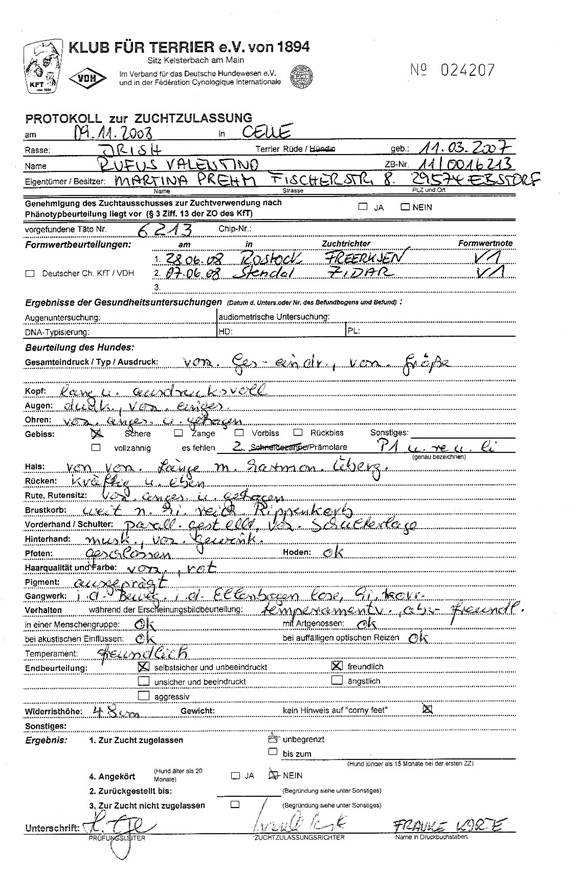 KLUB FÜR TERRIER e.V. von 1894
Sitz Kelsterbach am Main
Im Verband für das Deutsche Hundewesen e.V.
und in der Fédération Cynologique Internationale
KFT
VDH
Nº 024207
PROTOKOLL zur ZUCHTZULASSUNG
am 09.11.2008 in CELLE
Rasse: IRISH Terrier Rüde / Hündin geb.: 11.03.2007
Name RUFUS VALENTINO ZB-Nr. 11/0016213
Eigentümer / Besitzer: MARTINA PREHM FISCHERSTR. 8. 29574 EBSTORF
Name Strasse PLZ und Ort
Genehmigung des Zuchtausschusses zur Zuchtverwendung nach
Phänotypbeurteilung liegt vor (§ 3 Ziff. 13 der ZO des KfT) JA NEIN
vorgefundene Täto Nr. 6213 Chip-Nr.:
Formwertbeurteilungen: am in Zuchtrichter Formwertnote
1. 28.06.08 Rostock FREERKSEN V1
Deutscher Ch. KfT / VDH 2. 07.06.08 Stendal ZIDAR V1
3.
Ergebnisse der Gesundheitsuntersuchungen (Datum d. Unters.oder Nr. des Befundbogens und Befund) :
Augenuntersuchung: audiometrische Untersuchung:
DNA-Typisierung: HD: PL:
Beurteilung des Hundes:
Gesamteindruck / Typ / Ausdruck: vorz. Ges-eindr., vorz. Größe
Kopf: lang u. ausdrucksvoll
Augen: dunkel, vorz. einges.
Ohren: vorz. anges. u. getragen
Gebiss: Schere Zange Vorbiss Rückbiss Sonstiges:
vollzahnig es fehlen 2 Schneidezähne/Prämolare P1 u. re u. li
(genau bezeichnen)
Hals: von vorz. Länge m. harmon. Überg.
Rücken: kräftig u. eben
Rute, Rutensitz: vorz. anges. u. getragen
Brustkorb: weit n. hi. reich. Rippenkorb
Vorderhand / Schulter: parall. gestellt, vorz. Schulterlage
Hinterhand: musk., vorz. gewink.
Pfoten: geschlossen Hoden: ok
Haarqualität und Farbe: vorz., rot
Pigment: ausgeprägt
Gangwerk: i. d. Beweg. i. d. Ellenbogen lose, hi. korr.
Verhalten während der Erscheinungsbildbeurteilung: temperamentv., abs. freundl.
in einer Menschengruppe: ok mit Artgenossen: ok
bei akustischen Einflüssen: ok bei auffälligen optischen Reizen ok
Temperament: freundlich
Endbeurteilung: selbstsicher und unbeeindruckt freundlich
unsicher und beeindruckt ängstlich
aggressiv
Widerristhöhe: 48cm Gewicht: kein Hinweis auf "corny feet"
Sonstiges:
Ergebnis: 1. Zur Zucht zugelassen unbegrenzt
bis zum
(Hund jünger als 15 Monate bei der ersten ZZ)
4. Angekört (Hund älter als 20 Monate) JA NEIN
2. Zurückgestellt bis: (Begründung siehe unter Sonstiges)
3. Zur Zucht nicht zugelassen (Begründung siehe unter Sonstiges)
Unterschrift: FRAUKE KORTE
PRÜFUNGSLEITER ZUCHTZULASSUNGSRICHTER Name in Druckbuchstaben